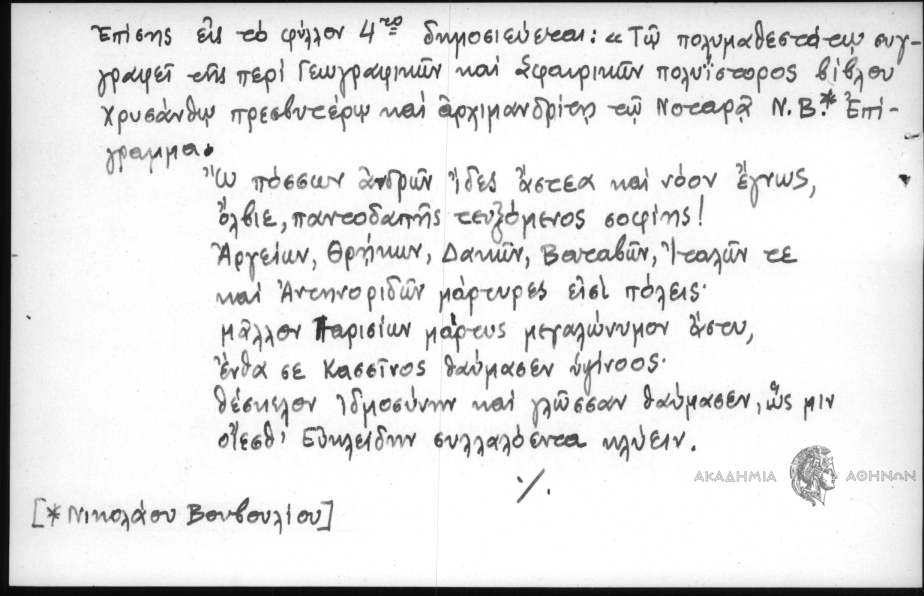 Ἐπίσης εἰς τὸ φύλλον 4το δημοσιεύεται: «Τῷ πολυμαθεστάτῳ συγ-
γραφεῖ τῆς περὶ Γεωγραφικῶν καὶ Σφαιρικῶν πολυΐστορος βίβλου
Χρυσάνθῳ πρεσβυτέρῳ καὶ ἀρχιμανδρίτῃ τῷ Νοταρᾷ Ν.Β.* Ἐπί-
γραμμα.
Ὢ πόσσων ἀνδρῶν ἴδες ἄστεα καὶ νόον ἔγνως,
ὄλβιε, παντοδαπῆς τευξόμενος σοφίης!
Ἀργείων, Θρῄκων, Δακῶν, Βαταβῶν, Ἰταλῶν τε
καὶ Ἀντηνοριδῶν μάρτυρες εἰσὶ πόλεις·
μᾶλλον Παρισίων μάρτυς μεγαλώνυμον ἄστυ,
ἔνθα σε Κασσῖνος θαύμασεν ὑψίνοος·
θέσκελον ἰδμοσύνην καὶ γλῶσσαν θαύμασεν, ὥς μιν
οἴεσθ' Εὐκλείδην συλλαλόεντα κλύειν.
./.
ΑΚΑΔΗΜΙΑ ΑΘΗΝΩΝ
[*Νικολάου Βουβουλίου]